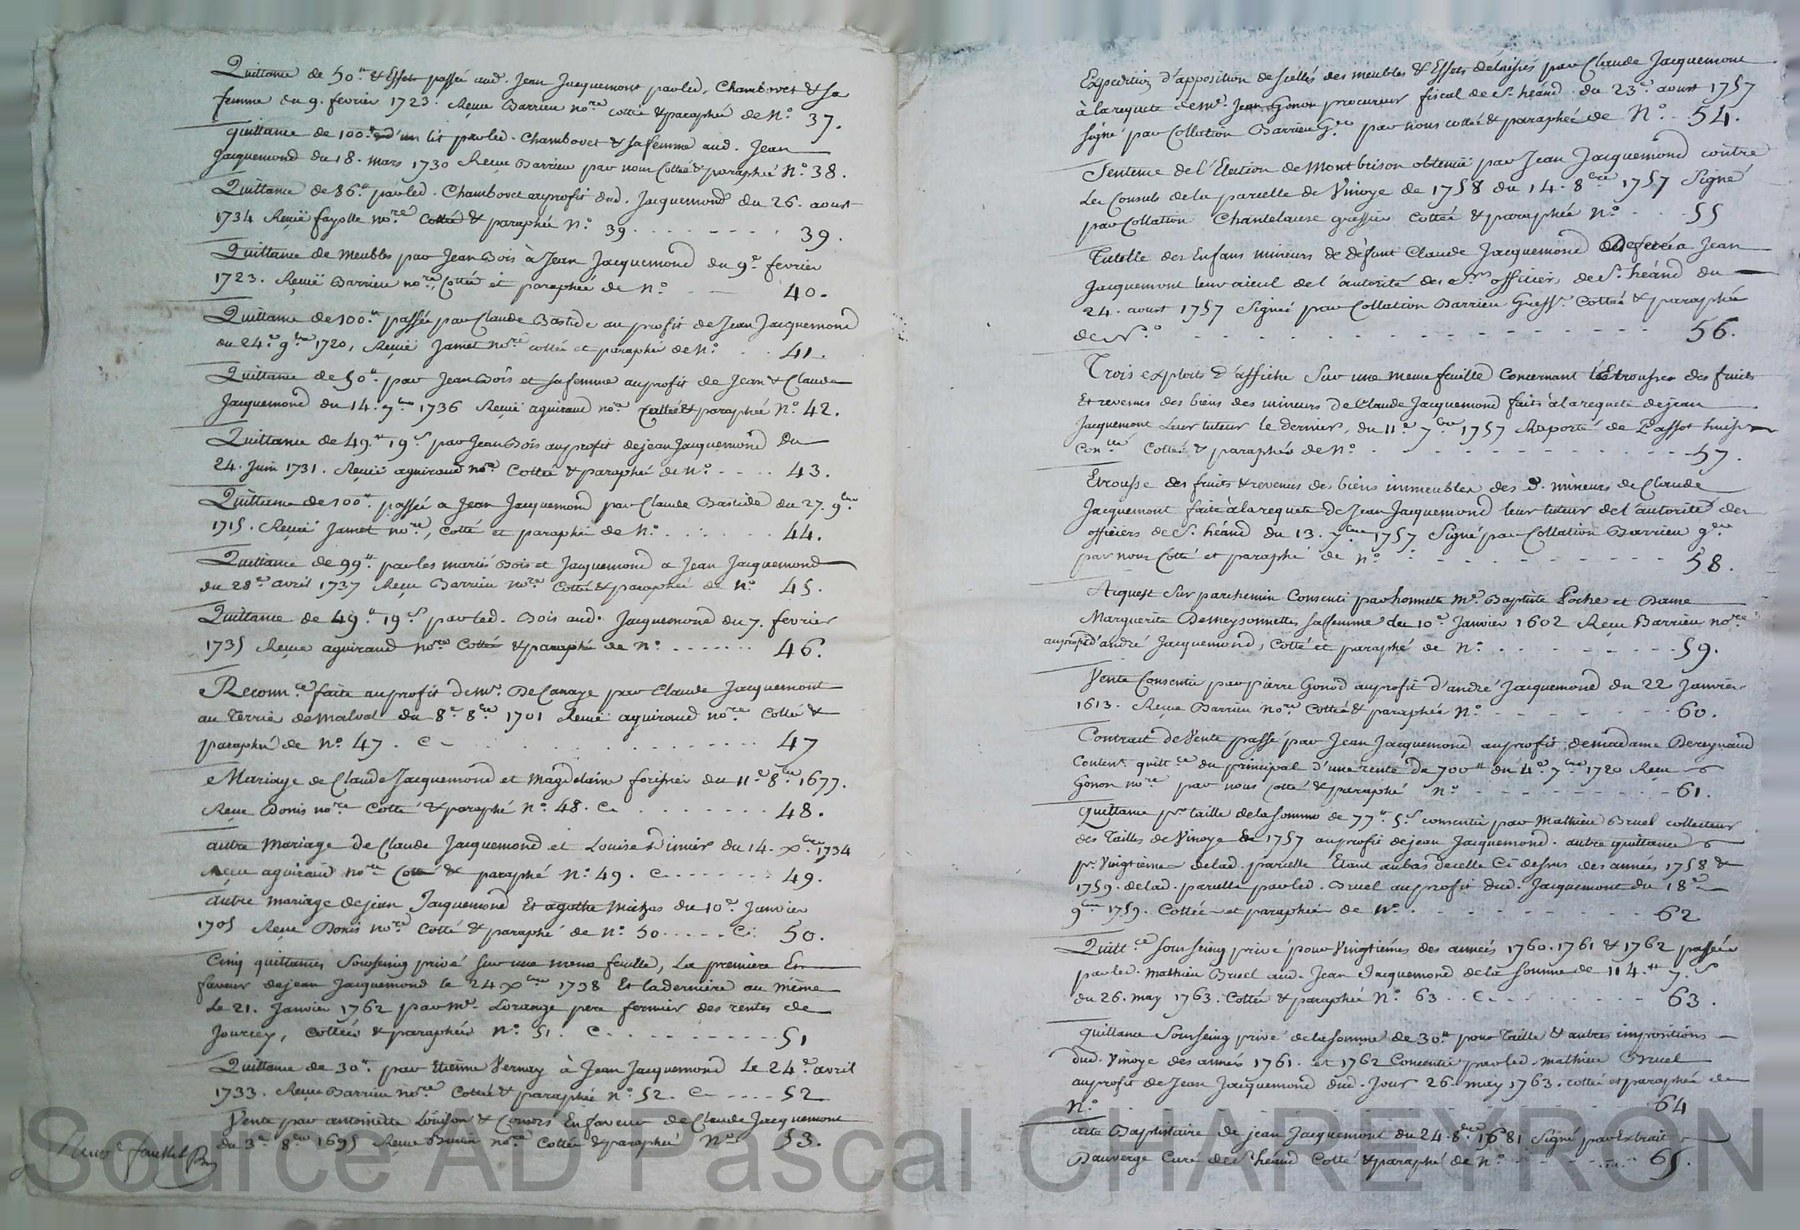 Quittance de 50.tt & Effets passée aud. Jean Jacquemont par led. Chambovet & sa
femme du 9. fevrier 1723. Reçue Barrieu no.re cottée & paraphée de N.o 37.
quittance de 100.tt d'un lit par led. Chambovet & sa femme aud. Jean
Jacquemond du 18. mars 1730 Reçue Barrieu par nous Cottée & paraphée N.o 38.
Quittance de 86.tt par led. Chambovet au profit dud. Jacquemond du 26. aoust
1734 Reçuë fayolle no.re Cottée & paraphée N.o 39. 39.
Quittance de Meubles par Jean Bois à Jean Jacquemond du 9.e fevrier
1723. Reçuë Barrieu no.re, Cottée et paraphée de N.o 40.
Quittance de 100.tt passée par Claude Bastide au profit de Jean Jacquemond
du 24.e 9.bre 1720, Reçuë Jamet no.re cottée et paraphée de N.o 41.
Quittance de 50.tt par Jean Bois et sa femme au profit de Jean & Claude
Jacquemond du 14. 7.bre 1736 Reçuë aguiraud no.re Cottée & paraphée N.o 42.
Quittance de 49.tt 19.s par Jean Bois au profit de jean Jacquemond du
24. Juin 1731. Reçuë aguiraud no.re Cottée & paraphée de N.o 43.
Quittance de 100.tt passée a Jean Jacquemond par Claude Bastide du 27. 9.bre
1715. Reçuë Jamet no.re, Cotté et paraphé de N.o 44.
Quittance de 99.tt par les mariés Bois et Jacquemond a Jean Jacquemond
du 28.e avril 1737 Reçue Barrieu no.re Cotté & paraphée de N.o 45.
Quittance de 49.tt 19.s par led. Bois aud. Jacquemond du 7. fevrier
1735 Reçue aguiraud no.re Cottée & paraphé de N.o 46.
Reconn.ce faite au profit de M.r De Canaye par Claude Jacquemont
au Terrie de Malval du 8.e 8.bre 1701 Reçuë aguiraud no.re Cotté &
paraphé de N.o 47. C 47
Mariage de Claude Jacquemond et Magdelaine du 11.e 8.bre 1677.
Reçue Bonis no.re Cotté & paraphé N.o 48. C 48.
autre Mariage de Claude Jacquemond et Louise du 14. x.bre 1734
Reçu aguiraud no.re Cotté & paraphé N.o 49. C 49.
autre mariage de jean Jacquemond Et agathe du 10.e Janvier
1705 Reçue Bonis no.re Cotté & paraphé de N.o 50 C. 50.
Cinq quittances Sousseing privé sur une meme feuille, La premiere En
faveur de jean Jacquemond le 24 x.bre 1738 Et la derniere au même
Le 21. Janvier 1762 par M.r Lorange pere fermier des rentes de
Jourcey, Cottées & paraphées N.o 51. C 51
Quittance de 30.tt par Etienne Vernay à Jean Jacquemond Le 24.e avril
1733. Reçue Barrieu no.re Cottée & paraphée N.o 52. C 52
Vente par antoinette Louison & Consors En faveur de Claude Jacquemont
du 3.e 8.bre 1695 Reçue no.re Cottée & paraphée N.o 53.
Expedition d'apposition de scellés des meubles & Effets délaissés par Claude Jacquemont
à la requete de M.e Jean Gonon procureur fiscal de S.t heand du 23.e aoust 1757
Signé par Collation Barrieu G.er par nous cottée & paraphée de N.o 54.
Sentence de l'Election de Montbrison obtenuë par Jean Jacquemond contre
Les Consuls de la parcelle de Vinoye de 1758 du 14. 8.bre 1757 Signé
par Collation Chantelauze greffier Cottée & paraphée N.o 55
Tutelle des Enfans mineurs de défunt Claude Jacquemond Deferée a Jean
Jacquemont leur aieul de l'autorité des S.rs officiers de S.t héand du
24. aoust 1757 Signée par Collation Barrieu Greff.r Cottée & paraphée
de N.o 56.
Trois exploits d'affiche Sur une meme feuille Concernant l'Etrousse des fruits
Et revenus des biens des mineurs de Claude Jacquemond faits à la requete de jean
Jacquemont Leur tuteur le dernier, du 11.e 7.bre 1757 Raporté de Passot huissier
Cottés & paraphés de N.o 57.
Etrousse des fruits & revenus des biens immeubles des d. mineurs de Claude
Jacquemont faite à la requete de Jean Jacquemond leur tuteur de l'autorité des
officiers de S.t héand du 13. 7.bre 1757 Signé par Collation Barrieu g.er
par nous Cotté et paraphé de N.o 58.
Acquest Sur parchemin Consenti par honnette M.e Baptiste Poche et Dame
Marguerite Demeysonnettes sa femme du 10.e Janvier 1602 Reçu Barrieu no.re
au profit d'andré Jacquemond, Cotté et paraphé de N.o 59.
Vente Consentie par pierre Gonod au profit d'andré Jacquemond du 22 Janvier
1613. Reçue Barrieu no.re Cottée & paraphée N.o 60.
Contrait de Vente passé par Jean Jacquemond au profit de madame Dereynaud
Conten.t quitt.ce du principal d'une rente de 700.tt du 4.e 7.bre 1720 Reçu
Gonon no.re par nous Cotté & paraphé N.o 61.
Quittance p.r taille de la somme de 77.tt 5.s consentie par Mathieu Bruel collecteur
des Tailles de Vinoye de 1757 au profit de jean Jacquemond. autre quittance
p.r Vingtième de lad. parcelle Etant au bas de celle Ci dessus des années 1758 &
1759. de lad. parcelle par led. Bruel au profit dud. Jacquemont du 18.e
9.bre 1759. Cottée et paraphée de N.o 62
Quitt.ce Sousseing privé pour Vingtiémes des années 1760. 1761 & 1762 passée
par led. Mathieu Bruel aud. Jean Jacquemond de la somme de 114.tt 7.s
du 26. may 1763. Cottée & paraphée N.o 63. C 63.
quittance Sousseing privé de la somme de 30.tt pour Taille & autres impositions
dud. Vinoye des années 1761. et 1762 Consentie par led. Mathieu Bruel
au profit de Jean Jacquemond dud. Jour 26. may 1763. cottée et paraphée de
N.o 64
acte Baptistaire de jean Jacquemont du 24. 8.bre 1681 Signé par Extrait
Dauverge Curé de S.t héand Cotté & paraphé de N.o 65.
Source AD Pascal CHAREYRON